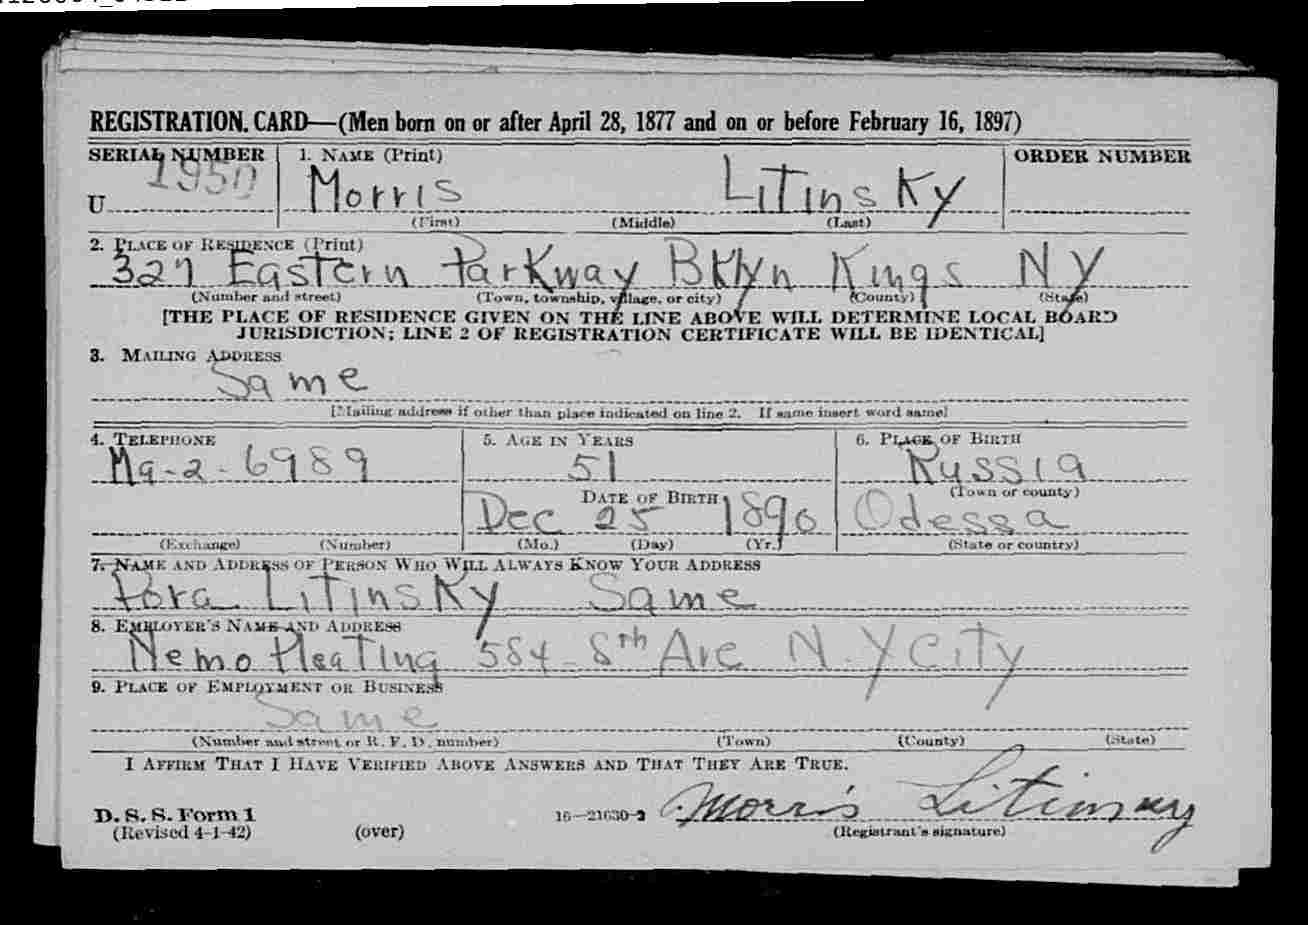 REGISTRATION CARD—(Men born on or after April 28, 1877 and on or before February 16, 1897)
SERIAL NUMBER 1. NAME (Print) ORDER NUMBER
1950
U Morris Litinsky
(First) (Middle) (Last)
2. PLACE OF RESIDENCE (Print)
327 Eastern Parkway Bklyn Kings NY
(Number and street) (Town, township, village, or city) (County) (State)
[THE PLACE OF RESIDENCE GIVEN ON THE LINE ABOVE WILL DETERMINE LOCAL BOARD
JURISDICTION; LINE 2 OF REGISTRATION CERTIFICATE WILL BE IDENTICAL]
3. MAILING ADDRESS
Same
[Mailing address if other than place indicated on line 2. If same insert word same]
4. TELEPHONE 5. AGE IN YEARS 6. PLACE OF BIRTH
Ma-2-6989 51 Russia
DATE OF BIRTH (Town or county)
Dec 25 1890 Odessa
(Exchange) (Number) (Mo.) (Day) (Yr.) (State or country)
7. NAME AND ADDRESS OF PERSON WHO WILL ALWAYS KNOW YOUR ADDRESS
Litinsky Same
8. EMPLOYER'S NAME AND ADDRESS
Nemo Heating 584 - 8th Ave N.Y City
9. PLACE OF EMPLOYMENT OR BUSINESS
Same
(Number and street or R. F. D. number) (Town) (County) (State)
I AFFIRM THAT I HAVE VERIFIED ABOVE ANSWERS AND THAT THEY ARE TRUE.
Morris Litinsky
D. S. S. Form 1 16—21630-2
(Revised 4-1-42) (over) (Registrant's signature)